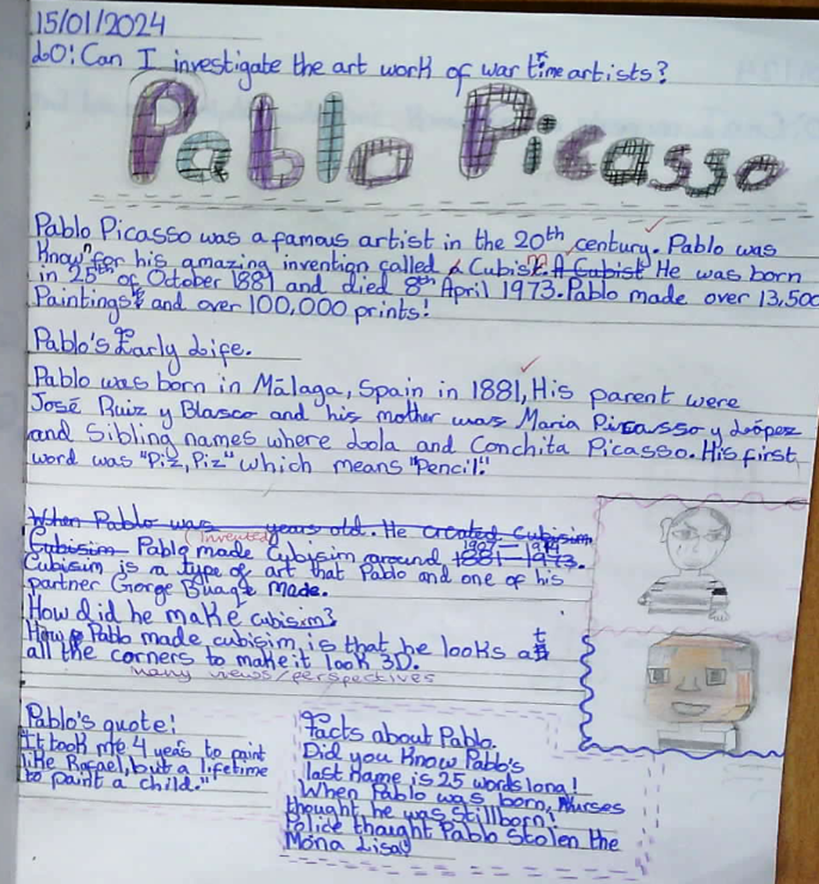 15/01/2024
LO: Can I investigate the art work of war time artists?
Pablo Picasso
Pablo Picasso was a famous artist in the 20th century. Pablo was
Known for his amazing invention called A Cubism. A Cubist He was born
in 25th of October 1881 and died 8th April 1973. Pablo made over 13,500
Paintings and over 100,000 prints!
Pablo's Early Life.
Pablo was born in Málaga, Spain in 1881, His parent were
José Ruiz y Blasco and his mother was Maria Picasso y López
and Sibling names where Lola and Conchita Picasso. His first
word was "Piz, Piz" which means "Pencil."
When Pablo was years old. He created Cubisim
Cubisim Pablo made (Invented) Cubisim around 1881-1973. 1907-1914
Cubisim is a type of art that Pablo and one of his
partner Gorge Buaqe made.
How did he make cubisim?
How Pablo made cubisim is that he looks at
all the corners to make it look 3D.
many views/perspectives
Pablo's quote!
It took me 4 yeas to paint
like Rafael, but a lifetime
to paint a child."
Facts about Pablo.
Did you Know Pablo's
last name is 25 words long!
When Pablo was born, Nurses
thought he was stillborn!
Police thought Pablo Stolen the
Mona Lisa!